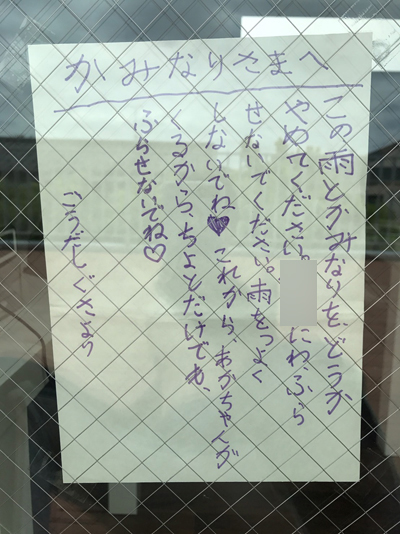 かみなりさまへ
この雨とかみなりを、どうか
やめてください。にわ、ふら
せないでください。雨をつよく
しないでね♥これから、あかちゃんが
くるから、ちょとだけでも、
ふらせないでね♡
ごうだしぐさより